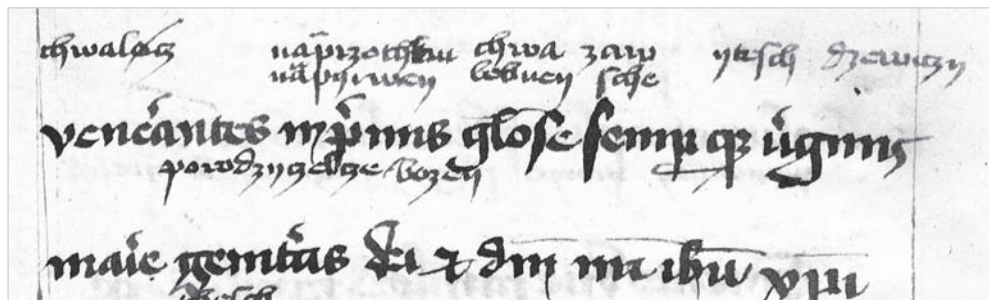 chwalącz naprzothku chwa zaw ytesch dzewiczy
napyrwey lebney sche
venerantes inprimis gl̄ose semp qȝ v̓ginis
porodzyczelcze bozey
marie genitricis dei et dni nr̄i ihū xp̄i